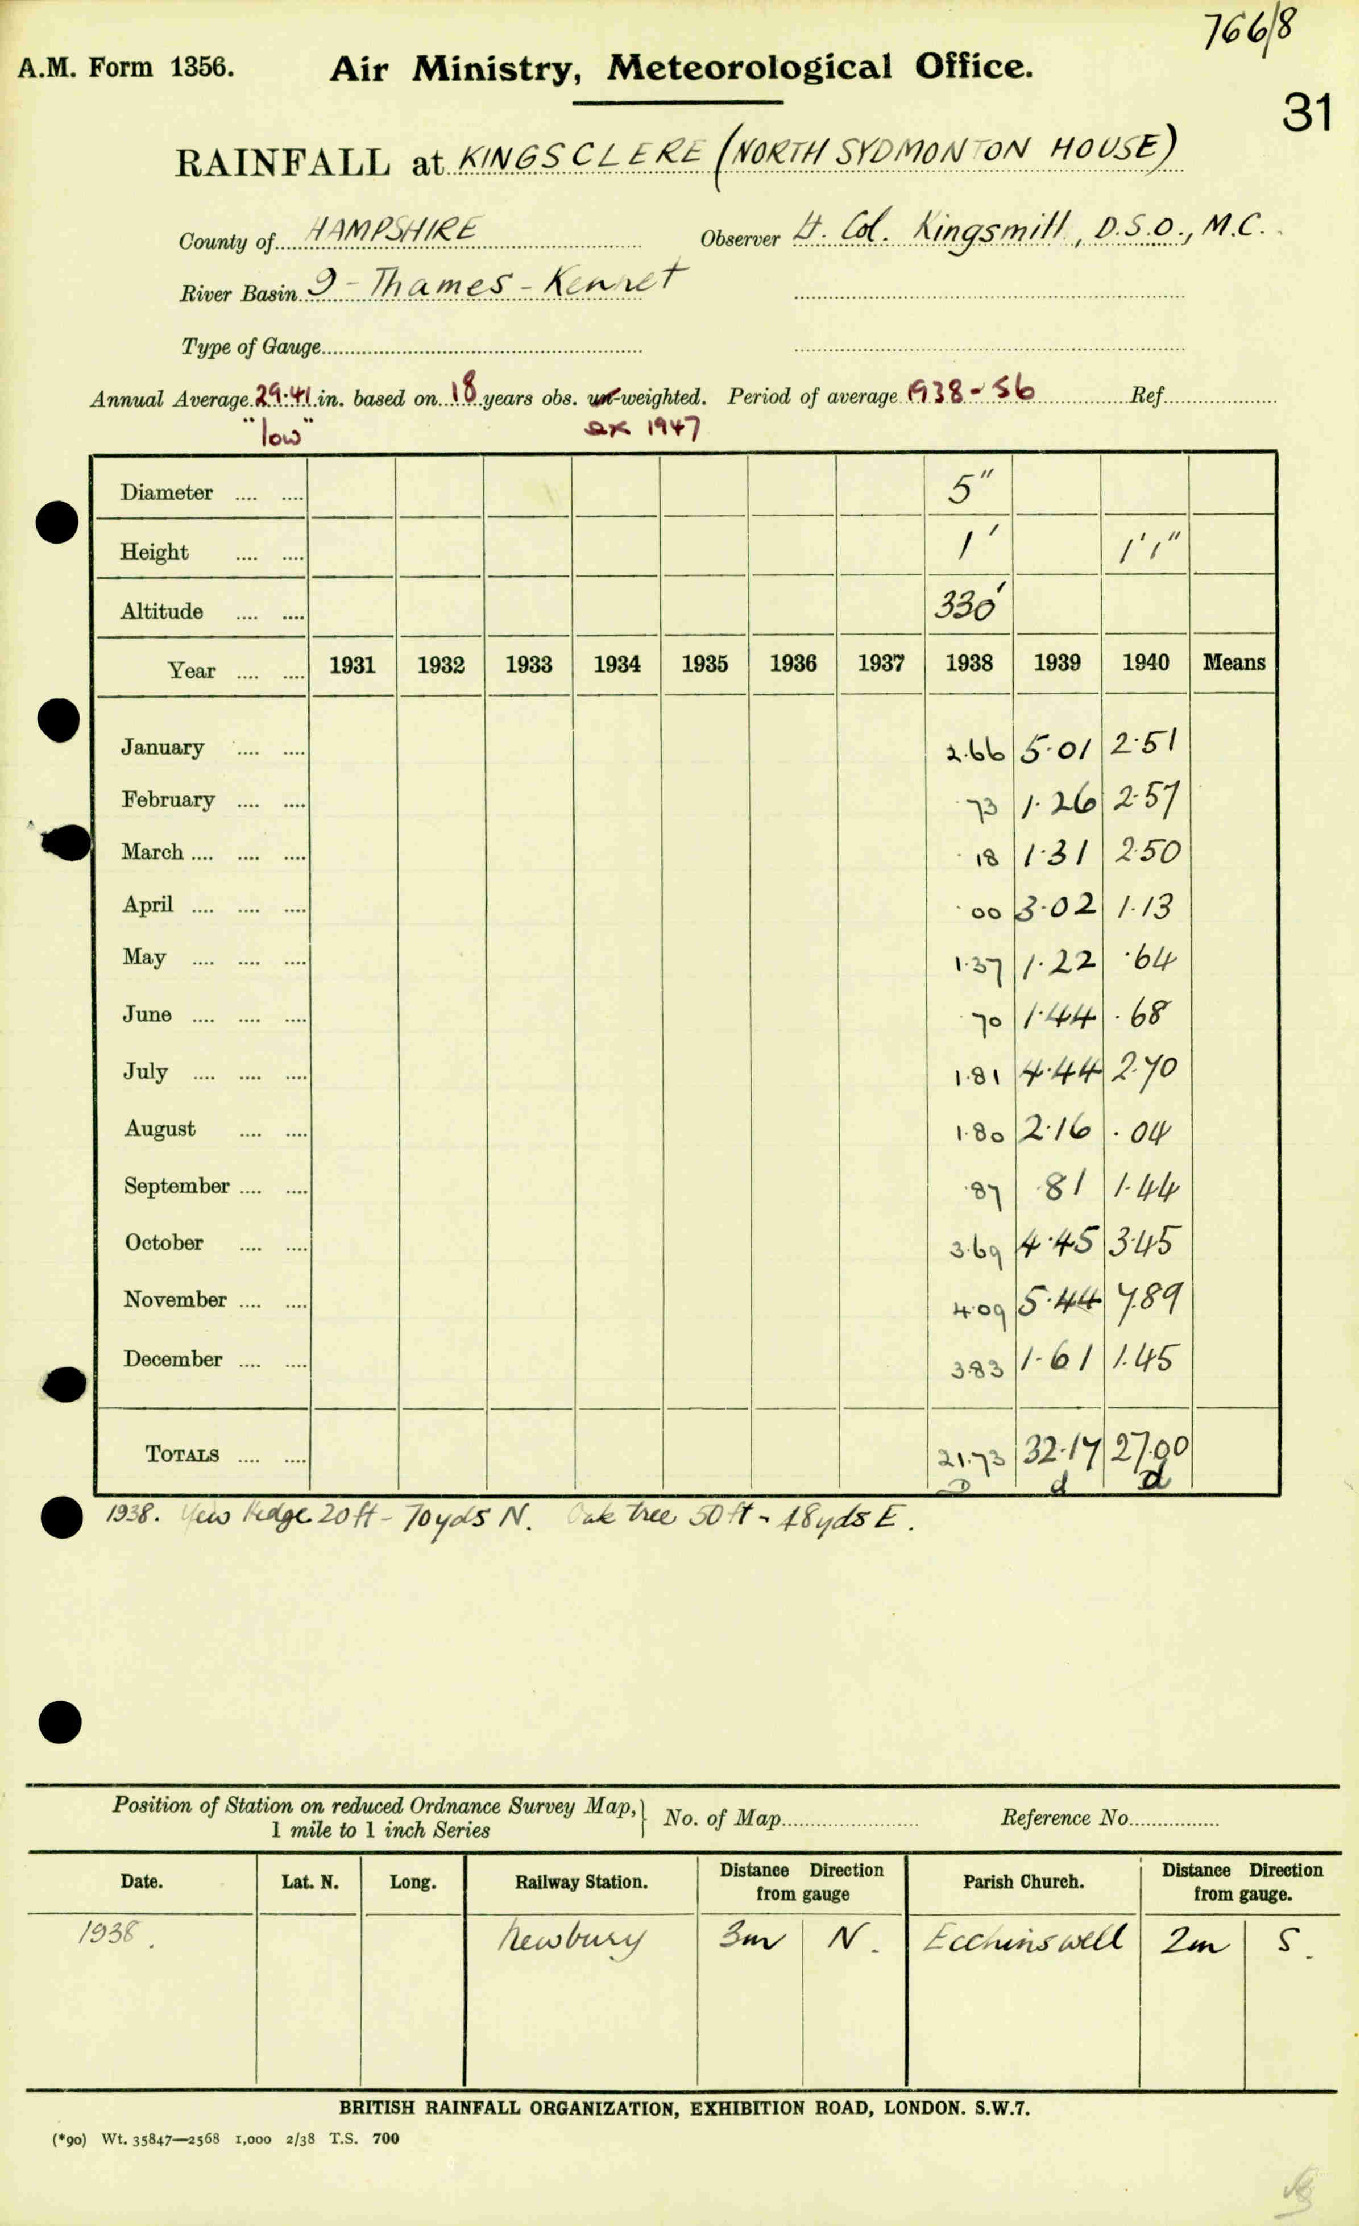 766/8
A.M. Form 1356. Air Ministry, Meteorological Office.
31
RAINFALL at KINGSCLERE (NORTH SYDMONTON HOUSE)
County of HAMPSHIRE Observer Lt. Col. Kingsmill, D.S.O., M.C.
River Basin 9 - Thames - Kennet
Type of Gauge
Annual Average 29.41 in. based on 18 years obs. un-weighted. Period of average 1938-56 Ref.
"low" ex 1947
Diameter 5"
Height 1' 1'1"
Altitude 330'
Year 1931 1932 1933 1934 1935 1936 1937 1938 1939 1940 Means
January 2.66 5.01 2.51
February .73 1.26 2.57
March .18 1.31 2.50
April .00 3.02 1.13
May 1.37 1.22 .64
June .70 1.44 .68
July 1.81 4.44 2.70
August 1.80 2.16 .04
September .87 .81 1.44
October 3.69 4.45 3.45
November 4.09 5.44 7.89
December 3.83 1.61 1.45
TOTALS 21.73 32.17 27.00
D d d
1938. Yew Hedge 20ft - 70yds N. Oak tree 50ft - 48yds E.
Position of Station on reduced Ordnance Survey Map, No. of Map Reference No.
1 mile to 1 inch Series
Date. Lat. N. Long. Railway Station. Distance Direction from gauge Parish Church. Distance Direction from gauge.
1938. Newbury 3m N. Ecchinswell 2m S.
BRITISH RAINFALL ORGANIZATION, EXHIBITION ROAD, LONDON. S.W.7.
(*90) Wt. 35847—2568 1,000 2/38 T.S. 700